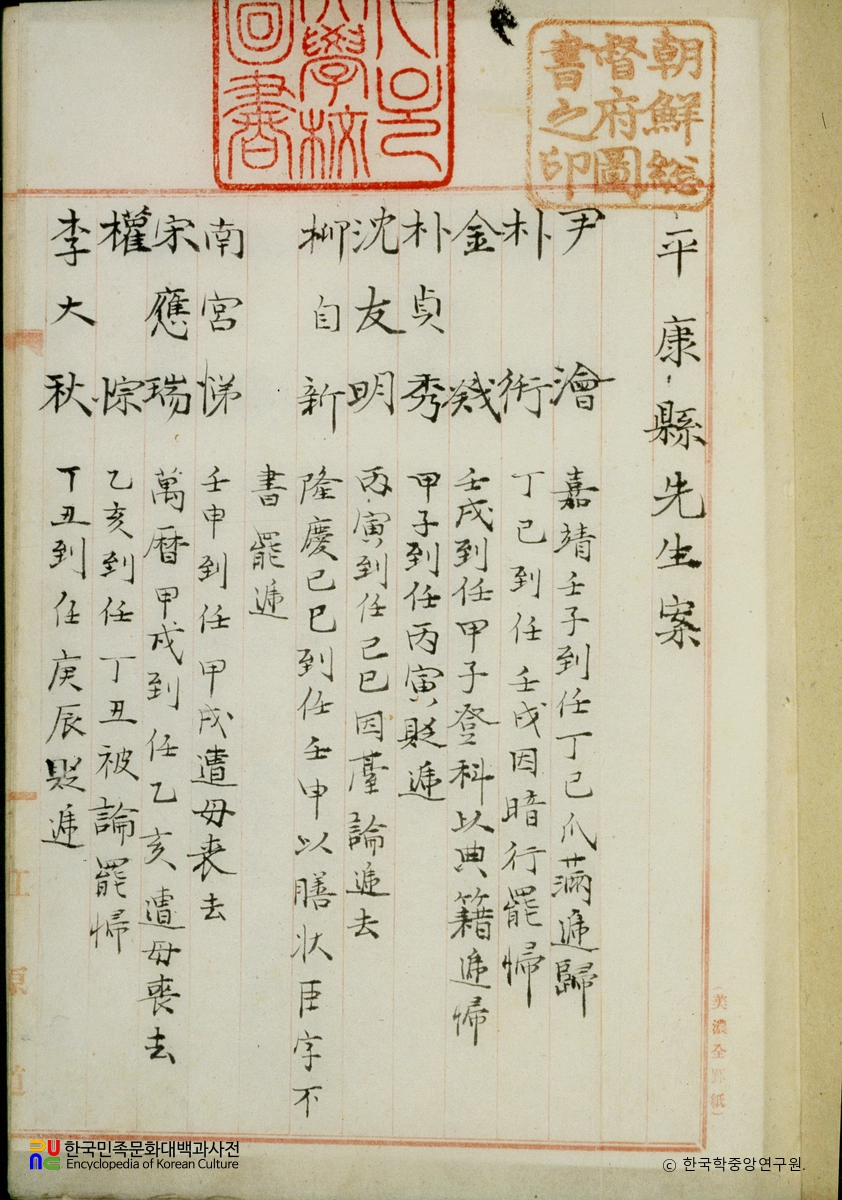 朝鮮総
督府圖
書之印
學校
圖書
平康縣先生案
尹澮 嘉靖壬子到任丁巳瓜滿遞歸
朴衎 丁巳到任壬戌因暗行罷歸
金 壬戌到任甲子登科以典籍遞歸
朴貞秀 甲子到任丙寅貶遞
沈友明 丙寅到任己巳因臺論遞去
柳自新 隆慶己巳到任壬申以膳狀臣字不
書罷遞
南宮悌 壬申到任甲戌遭母喪去
宋應瑞 萬曆甲戌到任乙亥遭母喪去
權悰 乙亥到任丁丑被論罷歸
李大秋 丁丑到任庚辰貶遞
(美濃全罫紙)
江原道
한국민족문화대백과사전
Encyclopedia of Korean Culture
ⓒ 한국학중앙연구원.